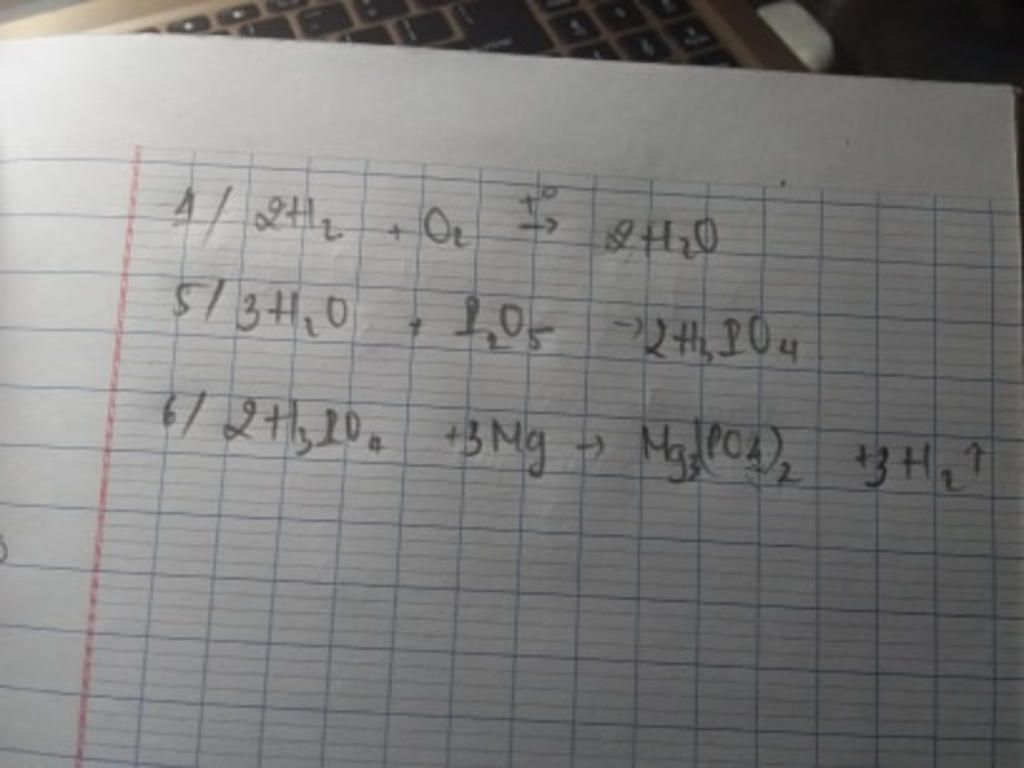 4/ 2H₂ + O₂ t°→ 2H₂O
5/ 3H₂O + P₂O₅ → 2H₃PO₄
6/ 2H₃PO₄ +3Mg → Mg₃(PO₄)₂ +3H₂↑